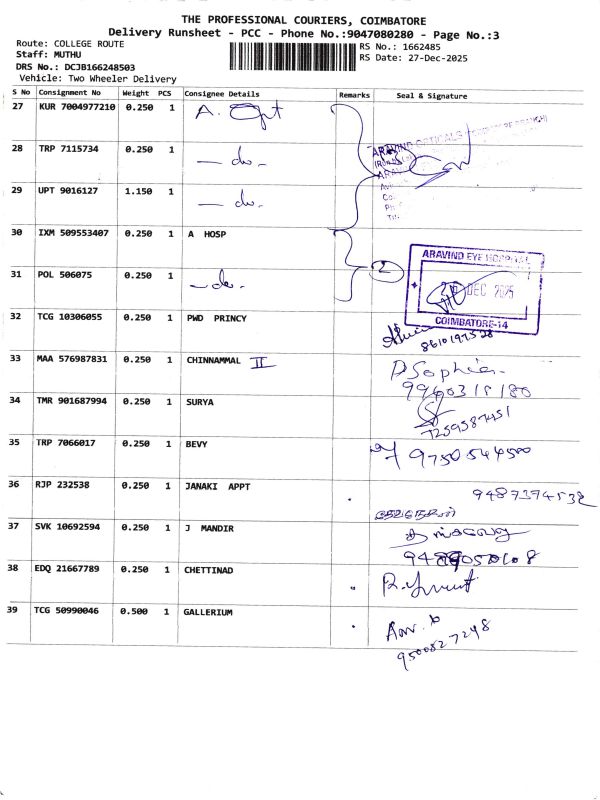 THE PROFESSIONAL COURIERS, COIMBATORE
Delivery Runsheet - PCC - Phone No.:9047080280 - Page No.:3
Route: COLLEGE ROUTE
RS No.: 1662485
Staff: MUTHU
RS Date: 27-Dec-2025
DRS No.: DCJB166248503
Vehicle: Two Wheeler Delivery
S No Consignment No Weight PCS Consignee Details Remarks Seal & Signature
27 KUR 7004977210 0.250 1 A. Opt
28 TRP 7115734 0.250 1 — do -
ARAVIND OPTICALS
29 UPT 9016127 1.150 1 — do -
30 IXM 509553407 0.250 1 A HOSP
31 POL 506075 0.250 1 — do - 2
ARAVIND EYE HOSPITAL
DEC 2025
COIMBATORE-14
32 TCG 10306055 0.250 1 PWD PRINCY
8610197528
33 MAA 576987831 0.250 1 CHINNAMMAL II
P Sophia
9960315180
34 TMR 901687994 0.250 1 SURYA
7259587451
35 TRP 7066017 0.250 1 BEVY
9750544500
36 RJP 232538 0.250 1 JANAKI APPT
9487374532
37 SVK 10692594 0.250 1 J MANDIR
38 EDQ 21667789 0.250 1 CHETTINAD
39 TCG 50990046 0.500 1 GALLERIUM
9500827248